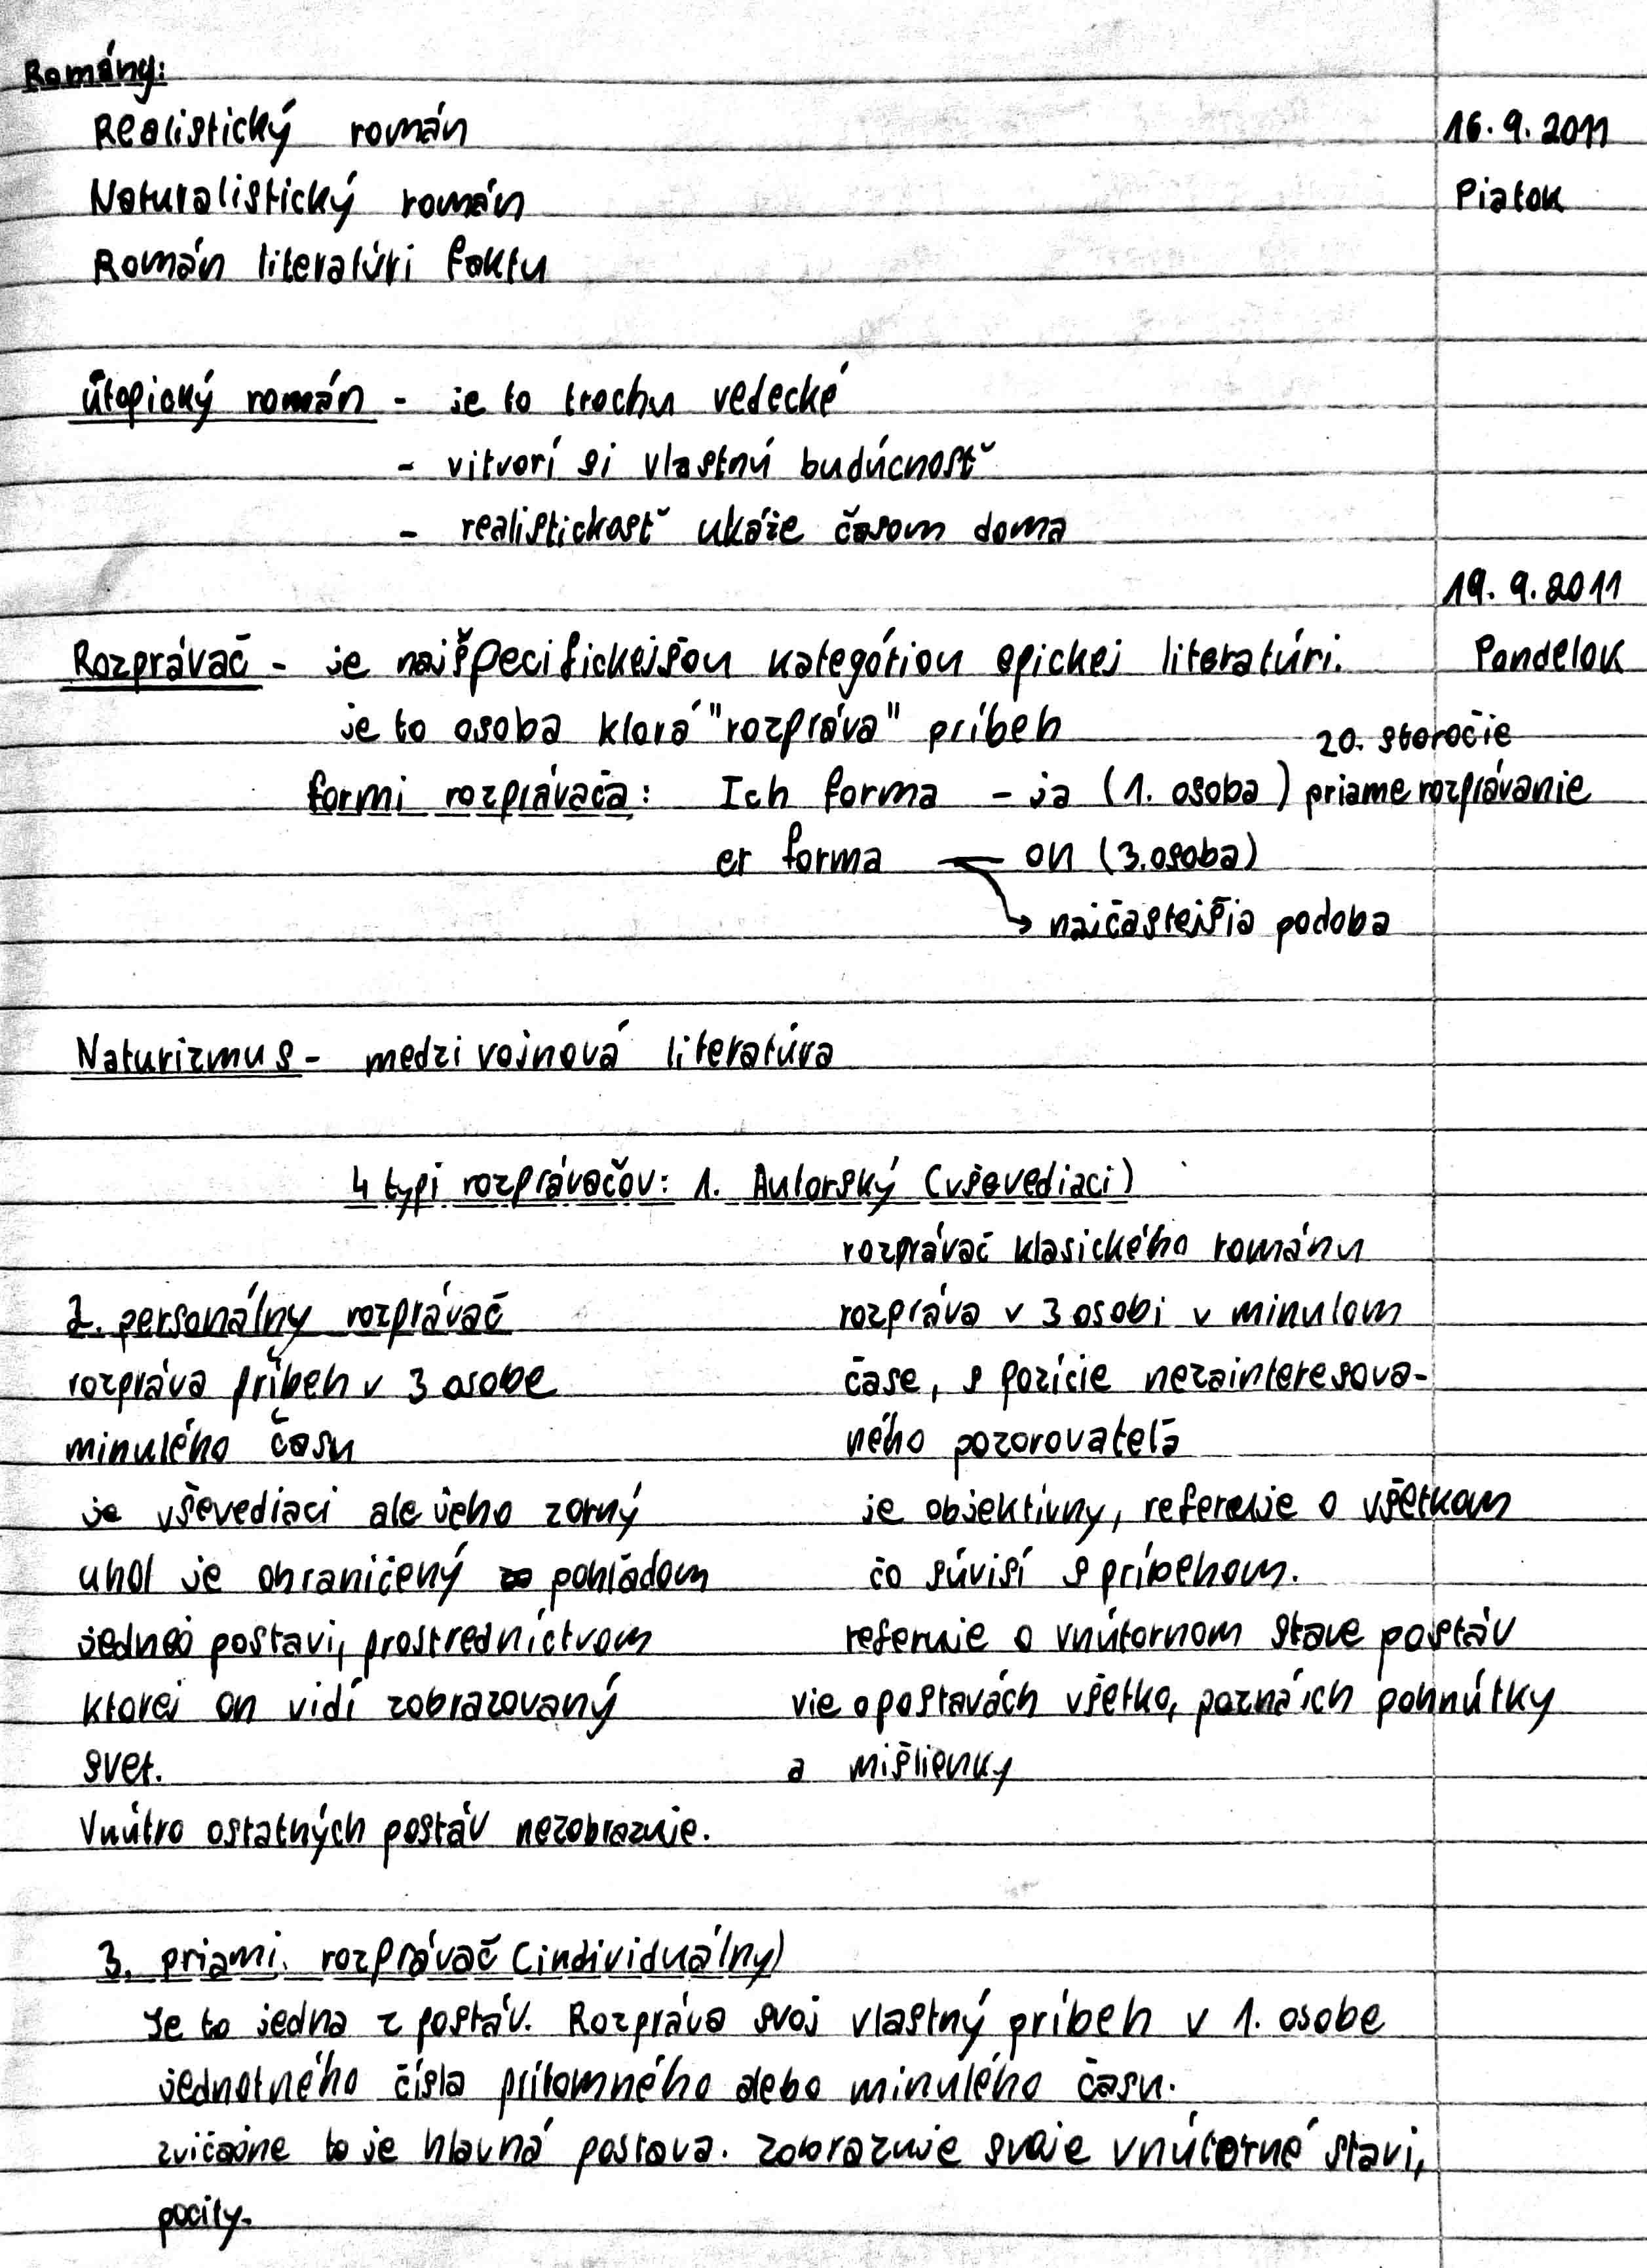 Romány:
Realistický román
16.9.2011
Naturalistický román
Piatok
Román literatúri faktu
útopický román - je to trochu vedecké
- vitvorí si vlastnú budúcnosť
- realistickosť ukáže časom doma
19.9.2011
Rozprávač - je najšpecifickejšou kategóriou epickej literatúri.
Pondelok
je to osoba ktorá "rozpráva" príbeh
20. storočie
formi rozprávača: Ich forma - ja (1. osoba) priame rozprávanie
er forma — on (3. osoba)
→ najčastejšia podoba
Naturizmus - medzi vojnová literatúra
4 typi rozprávačov: 1. Autorský (vševediaci)
rozprávač klasického románu
rozpráva v 3 osobi v minulom
čase, s pozície nezainteresova-
ného pozorovateľa
je objektívny, referuje o všetkom
čo súvisí s príbehom.
referuje o vnútornom stave postáv
vie o postavách všetko, pozná ich pohnútky
a mišlienky
2. personálny rozprávač
rozpráva príbeh v 3 osobe
minulého času
je vševediaci ale jeho zorný
uhol je ohraničený pohľadom
jednej postavi, prostredníctvom
ktorej on vidí zobrazovaný
svet.
Vnútro ostatných postáv nezobrazuje.
3. priami rozprávač (individuálny)
Je to jedna z postáv. Rozpráva svoj vlastný príbeh v 1. osobe
jednotného čísla prítomného alebo minulého času.
zvičajne to je hlavná postava. zobrazuje svoje vnútorné stavi,
pocity.